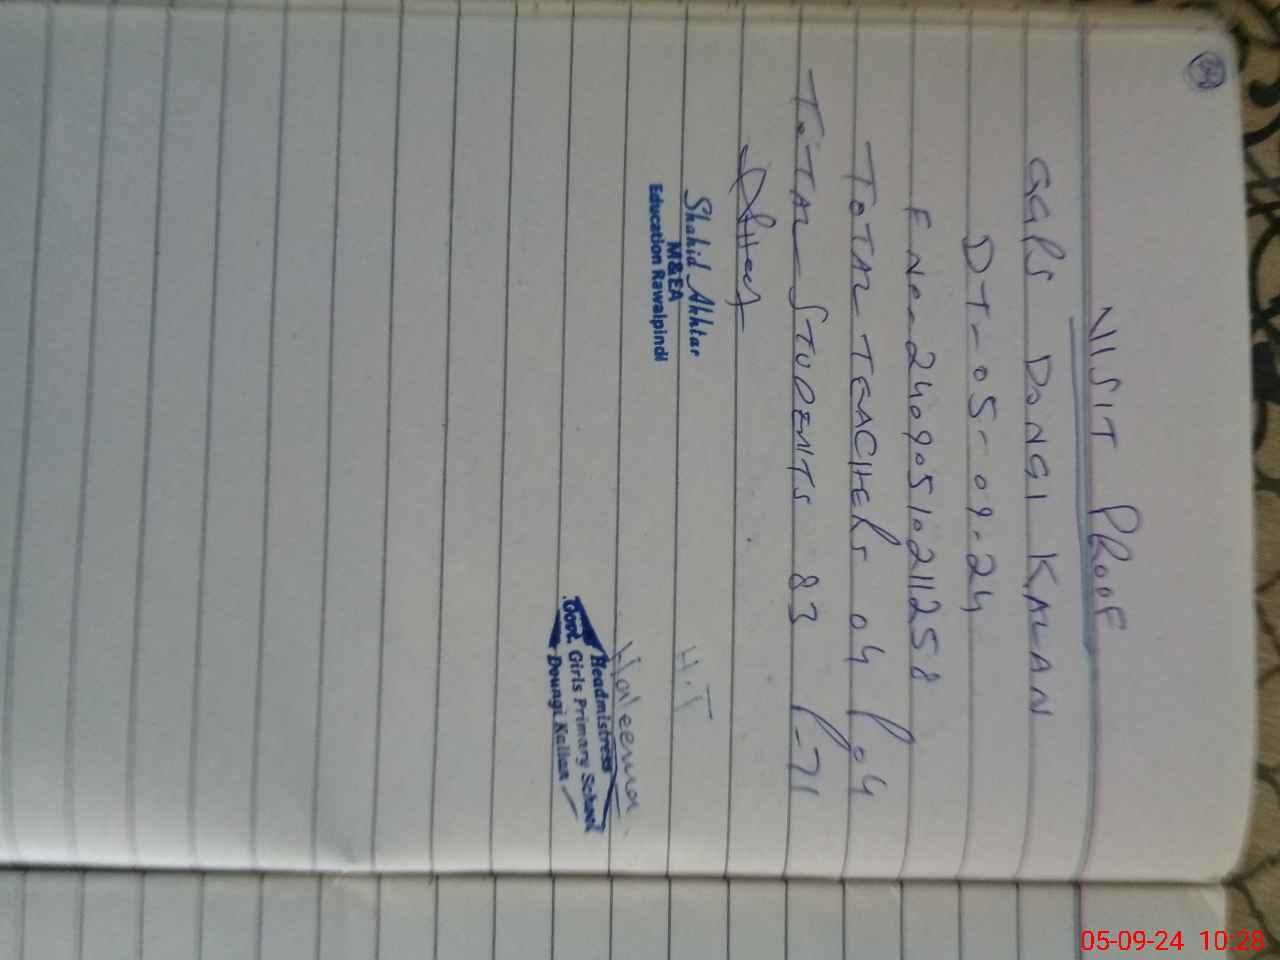 VISIT PROOF
GGPS DONGI KALAN
DT-05-09-24
ENo-24090510211258
TOTAL TEACHERS 04 P 04
TOTAL STUDENTS 83 P-71
Shahid Akhtar
M&EA
Education Rawalpindi
H.T
Haleema
Headmistress
Govt. Girls Primary School
Doungi Kallan
05-09-24 10:28